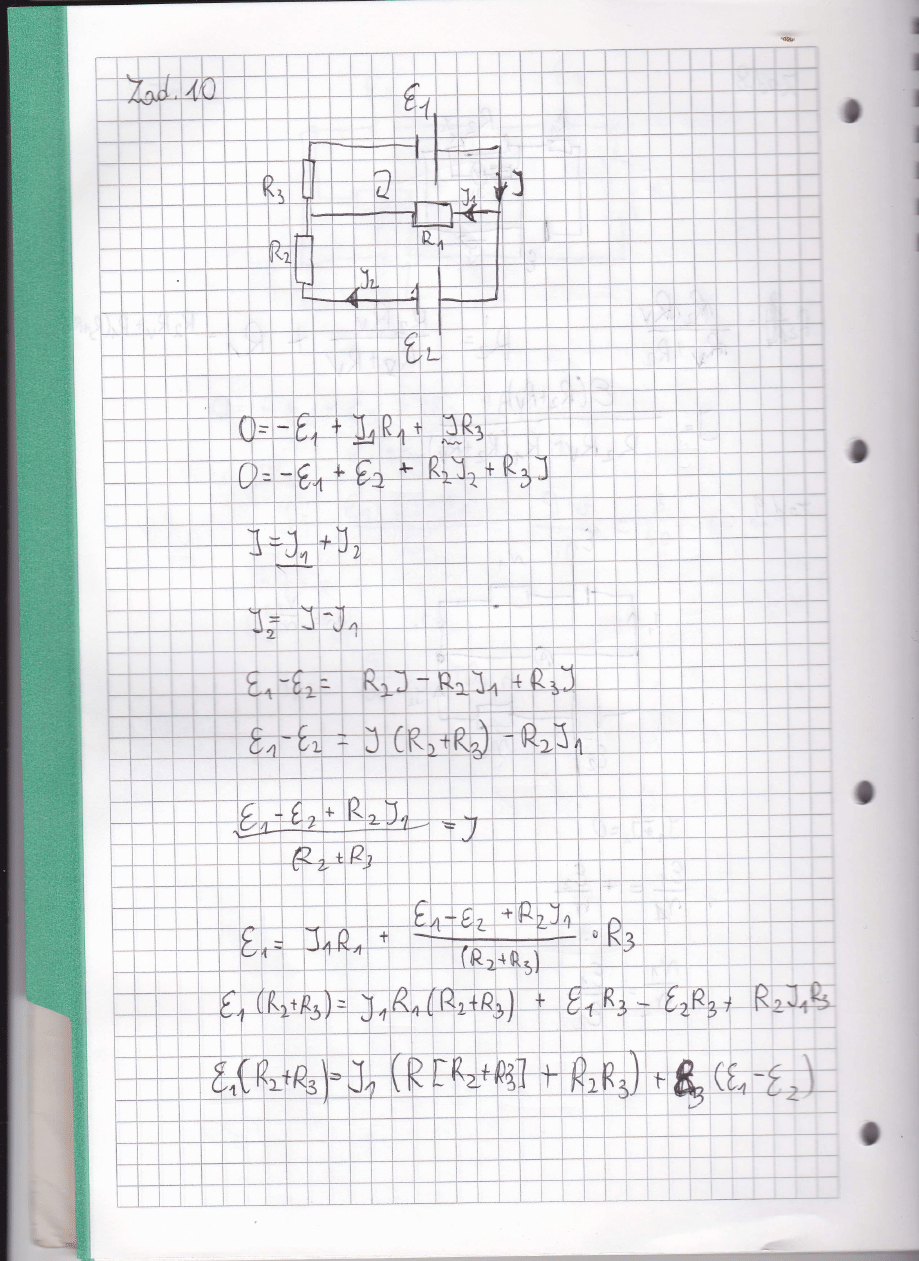 Zad. 10
ℰ1
R3
J
J1
R1
R2
J2
ℰ2
0 = -ℰ1 + J1R1 + JR3
0 = -ℰ1 + ℰ2 + R2J2 + R3J
J = J1 + J2
J2 = J - J1
ℰ1 - ℰ2 = R2J - R2J1 + R3J
ℰ1 - ℰ2 = J (R2+R3) - R2J1
ℰ1 - ℰ2 + R2J1 = J
(R2 + R3
ℰ1 = J1R1 + ℰ1 - ℰ2 + R2J1 · R3
(R2+R3)
ℰ1 (R2+R3) = J1R1 (R2+R3) + ℰ1R3 - ℰ2R3 + R2J1R3
ℰ1 (R2+R3) = J1 (R [R2+R3] + R2R3) + R3 (ℰ1 - ℰ2)